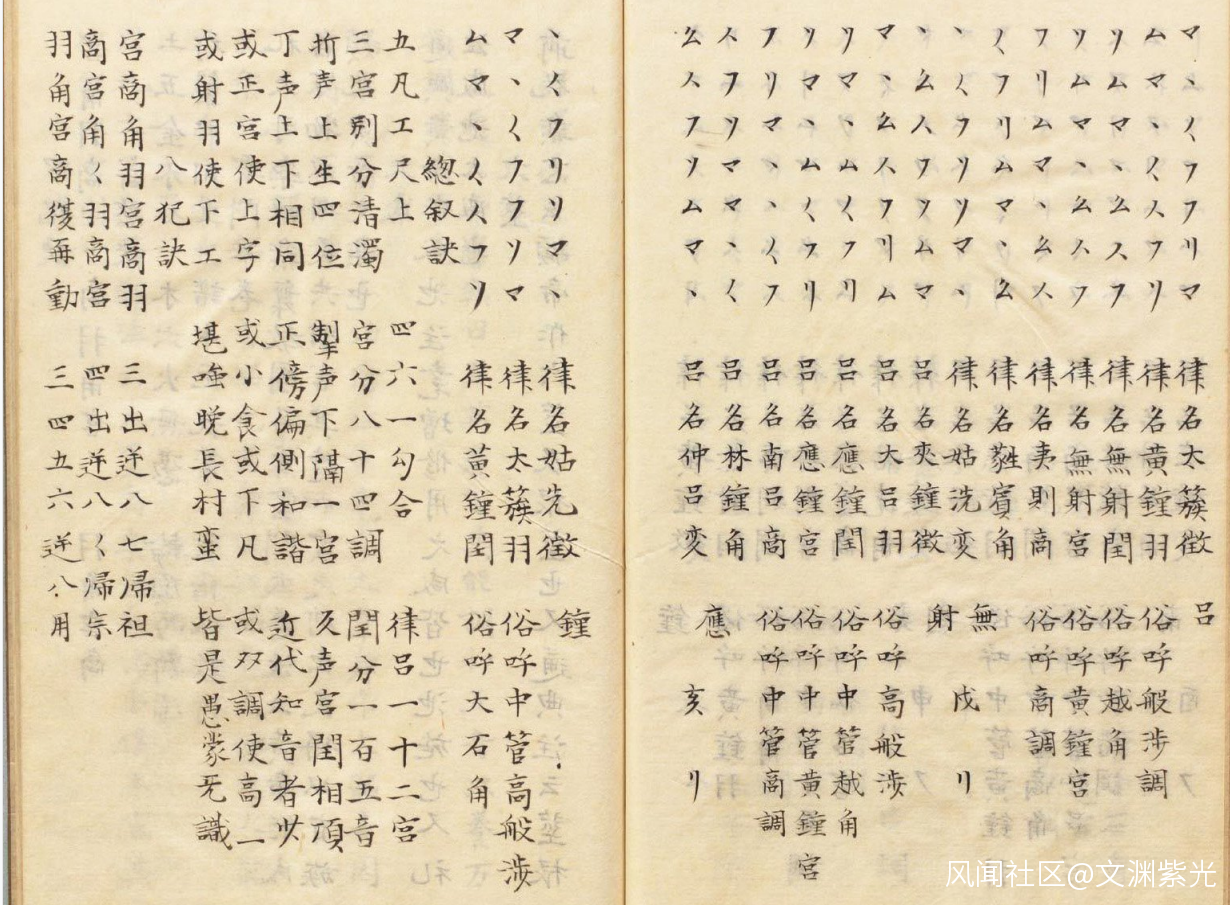 マ、くフフリマ 律名太簇徵 呂
ムマ、く人フリ 律名黃鐘羽 俗呼般涉調
リムマ、么人フ 律名無射閏 俗呼越角
リムマ、么人フ 律名無射宮 俗呼黃鐘宮
フリムマ、么人 律名夷則商 俗呼商調
くフリムマ、么 律名蕤賓角
無
、くフリリマ、 律名姑洗変 戌 リ
射
、么人フリムマ 呂名夾鐘徵
マ、么人フリム 呂名大呂羽 俗呼高般涉
リマ、ムくフリ 呂名應鐘閏 俗呼中管越角
リマ、ムくフリ 呂名應鐘宮 俗呼中管黃鐘宮
フリマ、、くフ 呂名南呂商 俗呼中管商調
人フリママ、く 呂名林鐘角 應
么人フリムマ、 呂名仲呂変 亥 リ
鐘
、くフリリマ、 律名姑洗徵
マ、くフフリマ 律名太簇羽 俗呼中管高般涉
ムマ、く人フリ 律名黃鐘閏 俗呼大石角
總叙訣
五凡工尺上 四六一勾合 律呂一十二宮
三宮別分清濁 宮分八十四調 閏分一百五音
折声上生四位 掣声下隔一宮 久声宮閏相項
丁声上下相同 正傍偏側和諧 近代知音者少
或正宮使上字 或小食或下凡 或双調使高一
或射羽使下工 堪嗤晚長村蛮 皆是愚蒙旡識
八犯訣
宮商角羽宮商羽 三出逆八七帰祖
商宮角く羽商宮 四出逆八く帰宗
羽角宮商復再動 三四五六逆八用
风闻社区@文渊紫光